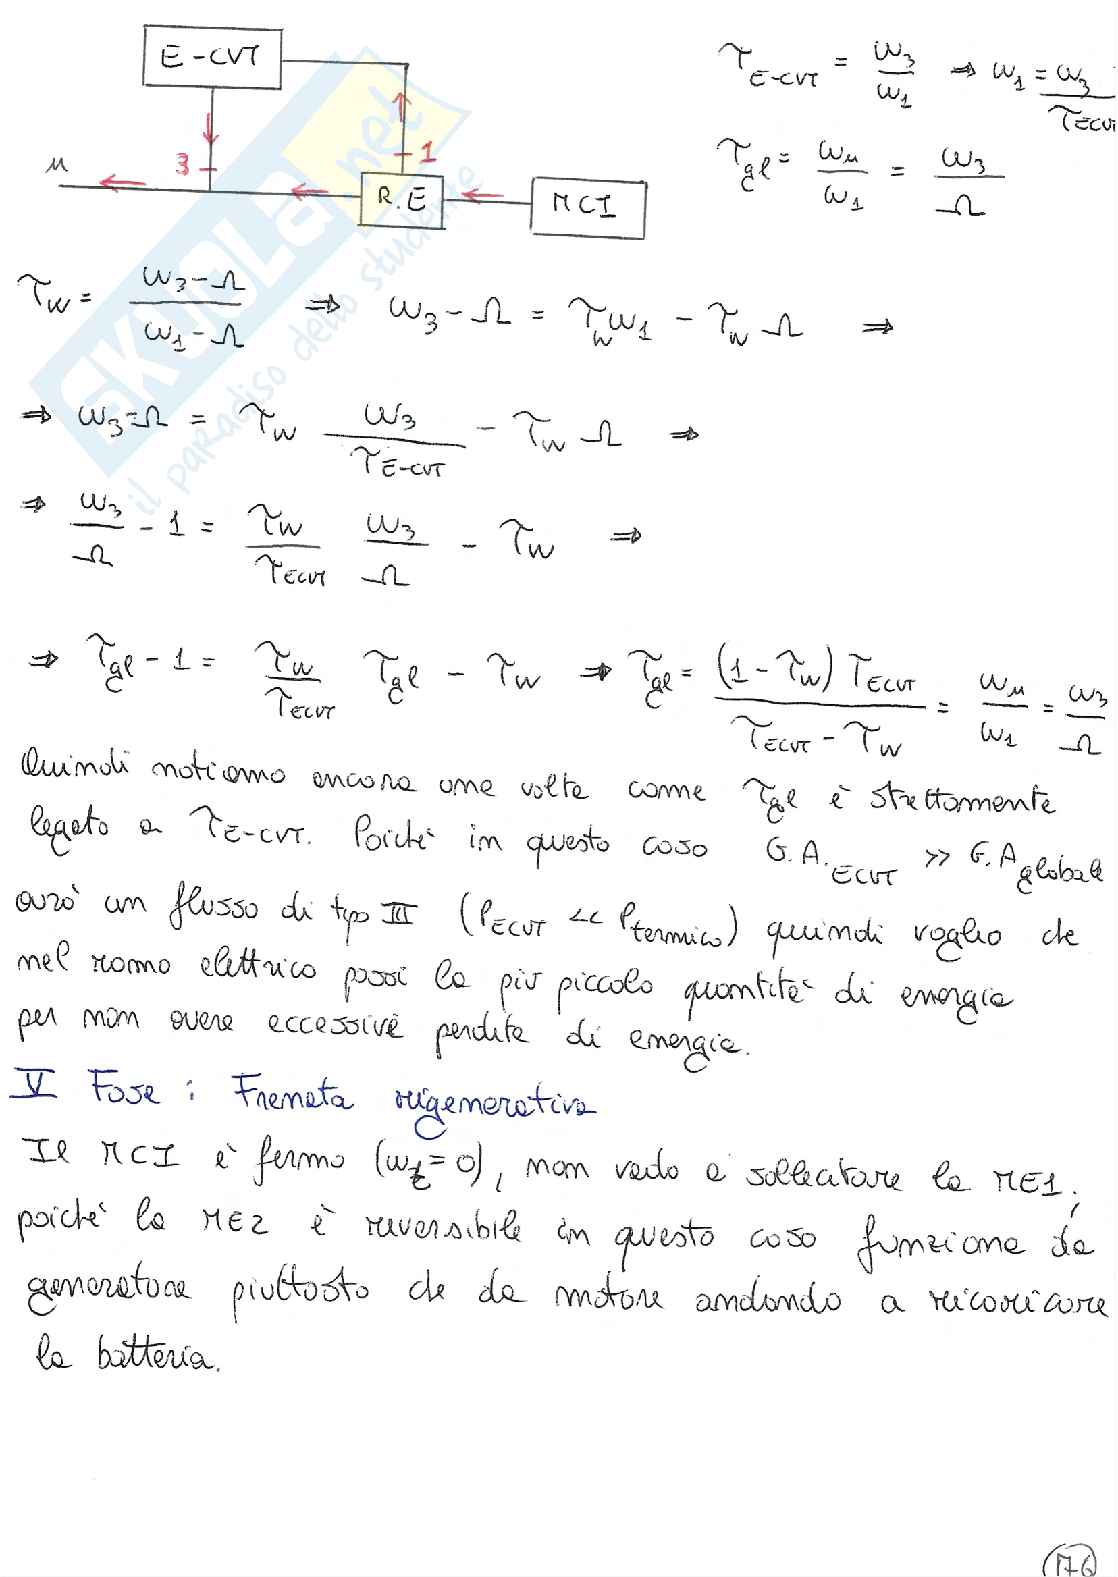 E-CVT
3
1
μ
R.E
MCI
τ_E-CVT = ω_3/ω_1 ⇒ ω_1 = ω_3/τ_ECVT
τ_gl = ω_μ/ω_1 = ω_3/Ω
τ_w = (ω_3-Ω)/(ω_1-Ω) ⇒ ω_3-Ω = τ_w ω_1 - τ_w Ω ⇒
⇒ ω_3-Ω = τ_w ω_3/τ_E-CVT - τ_w Ω ⇒
⇒ ω_3/Ω - 1 = τ_w/τ_ECVT ω_3/Ω - τ_w ⇒
⇒ τ_gl - 1 = τ_w/τ_ECVT τ_gl - τ_w ⇒ τ_gl = (1-τ_w) τ_ECVT/(τ_ECVT - τ_w) = ω_μ/ω_1 = ω_3/Ω
Quindi notiamo ancora una volta come τ_gl è strettamente
legato a τ_E-CVT. Poiché in questo caso G.A._ECVT >> G.A_globale
avrò un flusso di tipo III (P_ECVT << P_termico) quindi voglio che
nel ramo elettrico passi la più piccola quantità di energia
per non avere eccessive perdite di energia.
V Fase: Frenata rigenerativa
Il MCI è fermo (ω_t=0), non vado a sollecitare la ME1;
poiché la ME2 è reversibile in questo caso funziona da
generatore piuttosto che da motore andando a ricaricare
la batteria.
176
SKUOLA.net
il paradiso dello studente